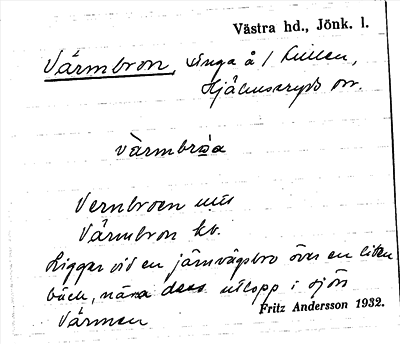 Västra hd., Jönk. l.
Värmbron,
Hjälmseryds
värmbròa
Vernbroen
Värmbron kv.
Ligger vid en järnvägsbro över en liten
bäck, nära dess utlopp i sjön
Värmen
Fritz Andersson 1932.